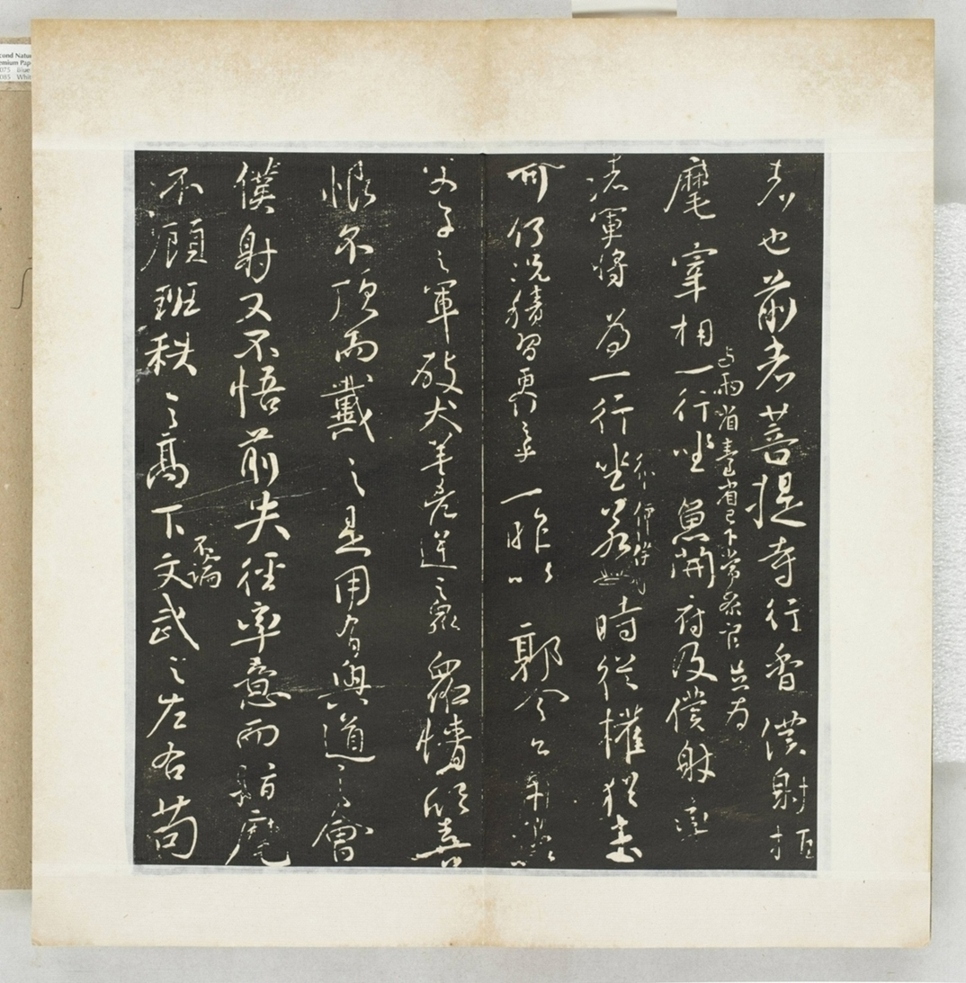 者也前者菩提寺行香僕射指
麾宰相与兩省臺省已下常參官並為
一行坐魚開府及僕射率
諸軍將為一行坐若
一時從權猶未
可何況積習更行之乎一昨以郭令公
父子之軍破犬羊兇逆之眾眾情欣喜
恨不頂而戴之是用有興道之會
僕射又不悟前失徑率意而指麾
不顧班秩之高下不論文武之左右苟